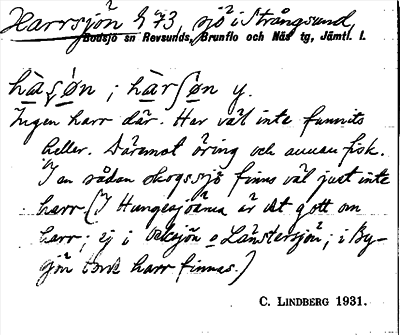 Harrsjön § 73, sjö i Strångsund,
Bodsjö sn Revsunds, Brunflo och Näs tg, Jämtl. l.
Ingen harr där. Har väl inte funnits
heller. Däremot öring och annan fisk.
I en sådan skogssjö finns väl just inte
harr (I Hungesjöarna är det gott om
harr; ej i o Länstersjön; i By-
sjön torde harr finnas.)
C. LINDBERG 1931.